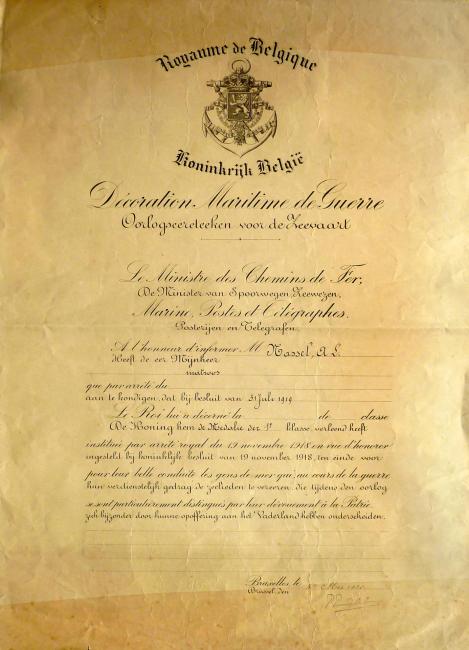 Royaume de Belgique
Koninkrijk België
Décoration Maritime de Guerre
Oorlogseereteeken voor de Zeevaart
Le Ministre des Chemins de Fer,
De Minister van Spoorwegen, Zeewezen,
Marine, Postes et Télégraphes.
Posterijen en Telegrafen,
A l'honneur d'informer M Massel, A L.
Heeft de eer Mijnheer
matroos
que par arrêté du
aan te kondigen, dat bij besluit van 31 Juli 1919
Le Roi lui a décerné la de classe
De Koning hem de Medalie der 3e klasse verleend heeft
institué par arrêté royal du 19 novembre 1918 en vue d'honorer
ingesteld bij koninklijk besluit van 19 november 1918, ten einde voor
pour leur belle conduite les gens de mer qui, au cours de la guerre,
hun verdienstelijk gedrag de zeelieden te vereeren, die tijdens den oorlog
se sont particulièrement distingués par leur dévouement à la Patrie.
zich bijzonder door hunne opoffering aan het Vaderland hebben onderscheiden.
Bruxelles, le
Brussel, den